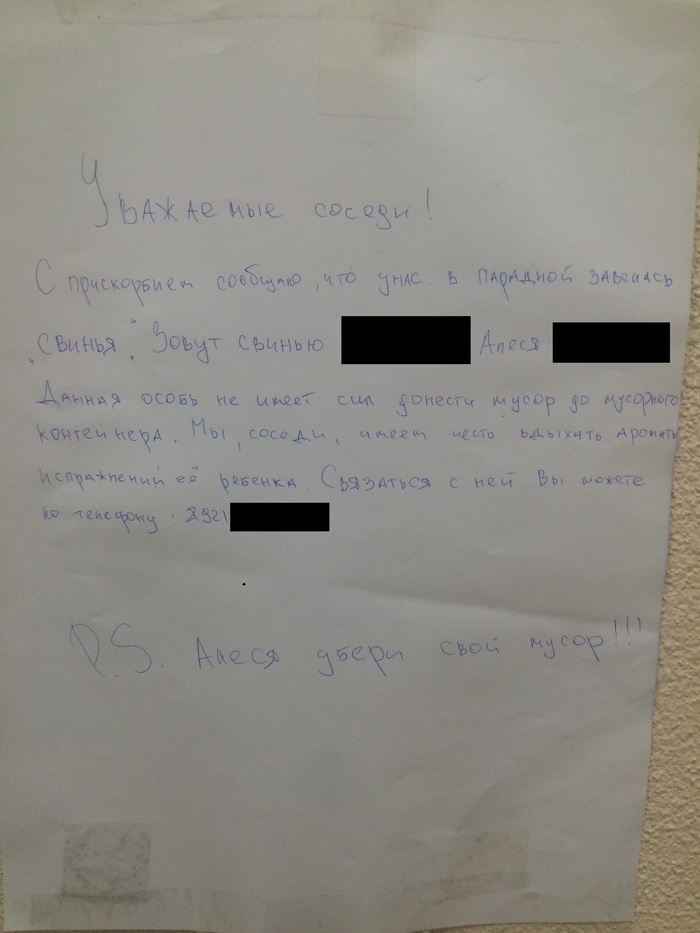 Уважаемые соседи!
С прискорбием сообщаю, что у нас в парадной завелась
„свинья". Зовут свинью Алеся
Данная особь не имеет сил донести мусор до мусорного
контейнера. Мы, соседи, имеем честь вдыхать ароматы
испражнений её ребенка. Связаться с ней Вы можете
по телефону: 8921
P.S. Алеся убери свой мусор!!!